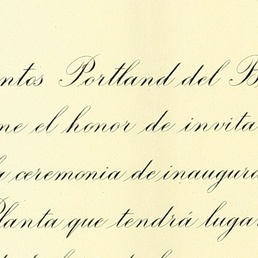 ntos Portland del B
ne el honor de invita
a ceremonia de inaugura
Planta que tendrá lugar